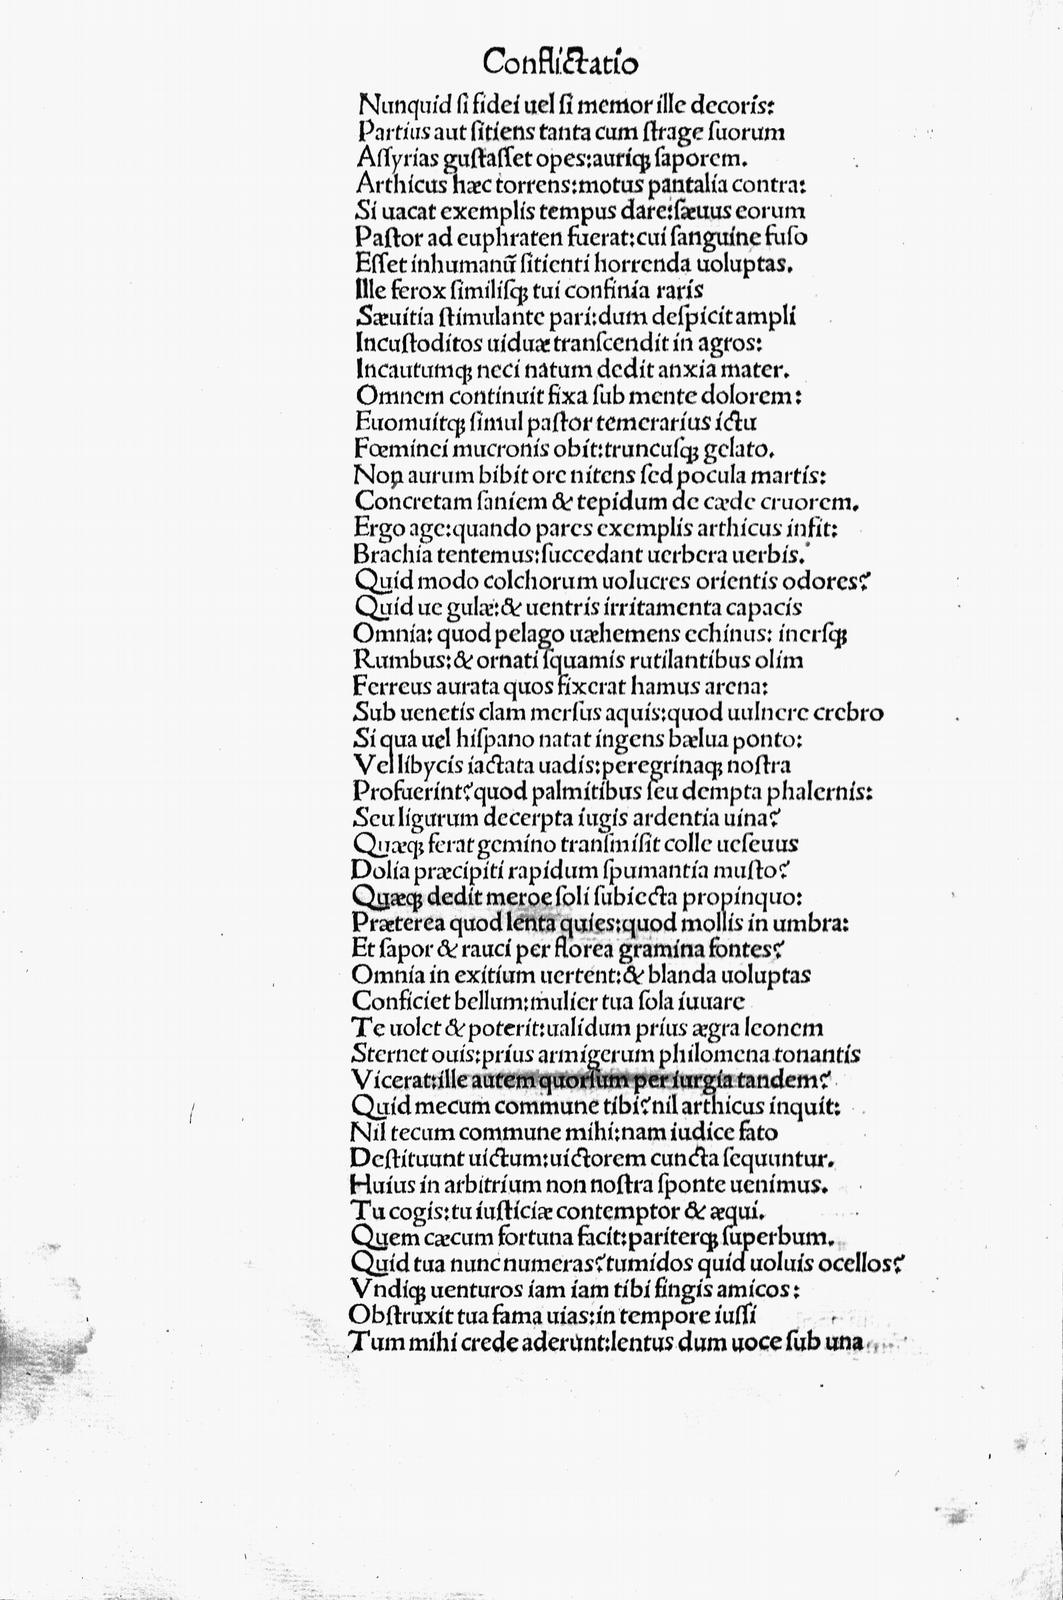 Conflictatio
Nunquid ſi fidei uel ſi memor ille decoris:
Partius aut ſitiens tanta cum ſtrage ſuorum
Aſſyrias guſtaſſet opes:auriqꝫ ſaporem.
Arthicus hæc torrens:motus pantalia contra:
Si uacat exemplis tempus dare:ſæuus eorum
Paſtor ad euphraten fuerat:cui ſanguine fuſo
Eſſet inhumanũ ſitienti horrenda uoluptas.
Ille ferox ſimiliſqꝫ tui confinia raris
Sæuitia ſtimulante pari:dum deſpicit ampli
Incuſtoditos uiduæ tranſcendit in agros:
Incautumqꝫ neci natum dedit anxia mater.
Omnem continuit fixa ſub mente dolorem:
Euomuitqꝫ ſimul paſtor temerarius ictu
Fœminei mucronis obit:truncuſqꝫ gelato.
Non aurum bibit ore nitens ſed pocula martis:
Concretam ſaniem & tepidum de cæde cruorem.
Ergo age:quando pares exemplis arthicus infit:
Brachia tentemus:ſuccedant uerbera uerbis.
Quid modo colchorum uolucres orientis odores?
Quid ue gulæ:& uentris irritamenta capacis
Omnia: quod pelago uæhemens echinus: inerſqꝫ
Rumbus:& ornati ſquamis rutilantibus olim
Ferreus aurata quos fixerat hamus arena:
Sub uenetis clam merſus aquis:quod uulnere crebro
Si qua uel hiſpano natat ingens bælua ponto:
Vel libycis iactata uadis:peregrinaqꝫ noſtra
Profuerint?quod palmitibus ſeu dempta phalernis:
Seu ligurum decerpta iugis ardentia uina?
Quæqꝫ ferat gemino tranſmiſit colle ueſeuus
Dolia præcipiti rapidum ſpumantia muſto?
Quæqꝫ dedit meroe ſoli ſubiecta propinquo:
Præterea quod lenta quies:quod mollis in umbra:
Et ſapor & rauci per florea gramina fontes?
Omnia in exitium uertent:& blanda uoluptas
Conficiet bellum:mulier tua ſola iuuare
Te uolet & poterit:ualidum prius ægra leonem
Sternet ouis:prius armigerum philomena tonantis
Vicerat:ille autem quorſum per iurgia tandem?
Quid mecum commune tibi?nil arthicus inquit:
Nil tecum commune mihi:nam iudice fato
Deſtituunt uictum:uictorem cuncta ſequuntur.
Huius in arbitrium non noſtra ſponte uenimus.
Tu cogis:tu iuſticiæ contemptor & æqui.
Quem cæcum fortuna facit:pariterqꝫ ſuperbum.
Quid tua nunc numeras?tumidos quid uoluis ocellos?
Vndiqꝫ uenturos iam iam tibi fingis amicos:
Obſtruxit tua fama uias:in tempore iuſſi
Tum mihi crede aderunt:lentus dum uoce ſub una